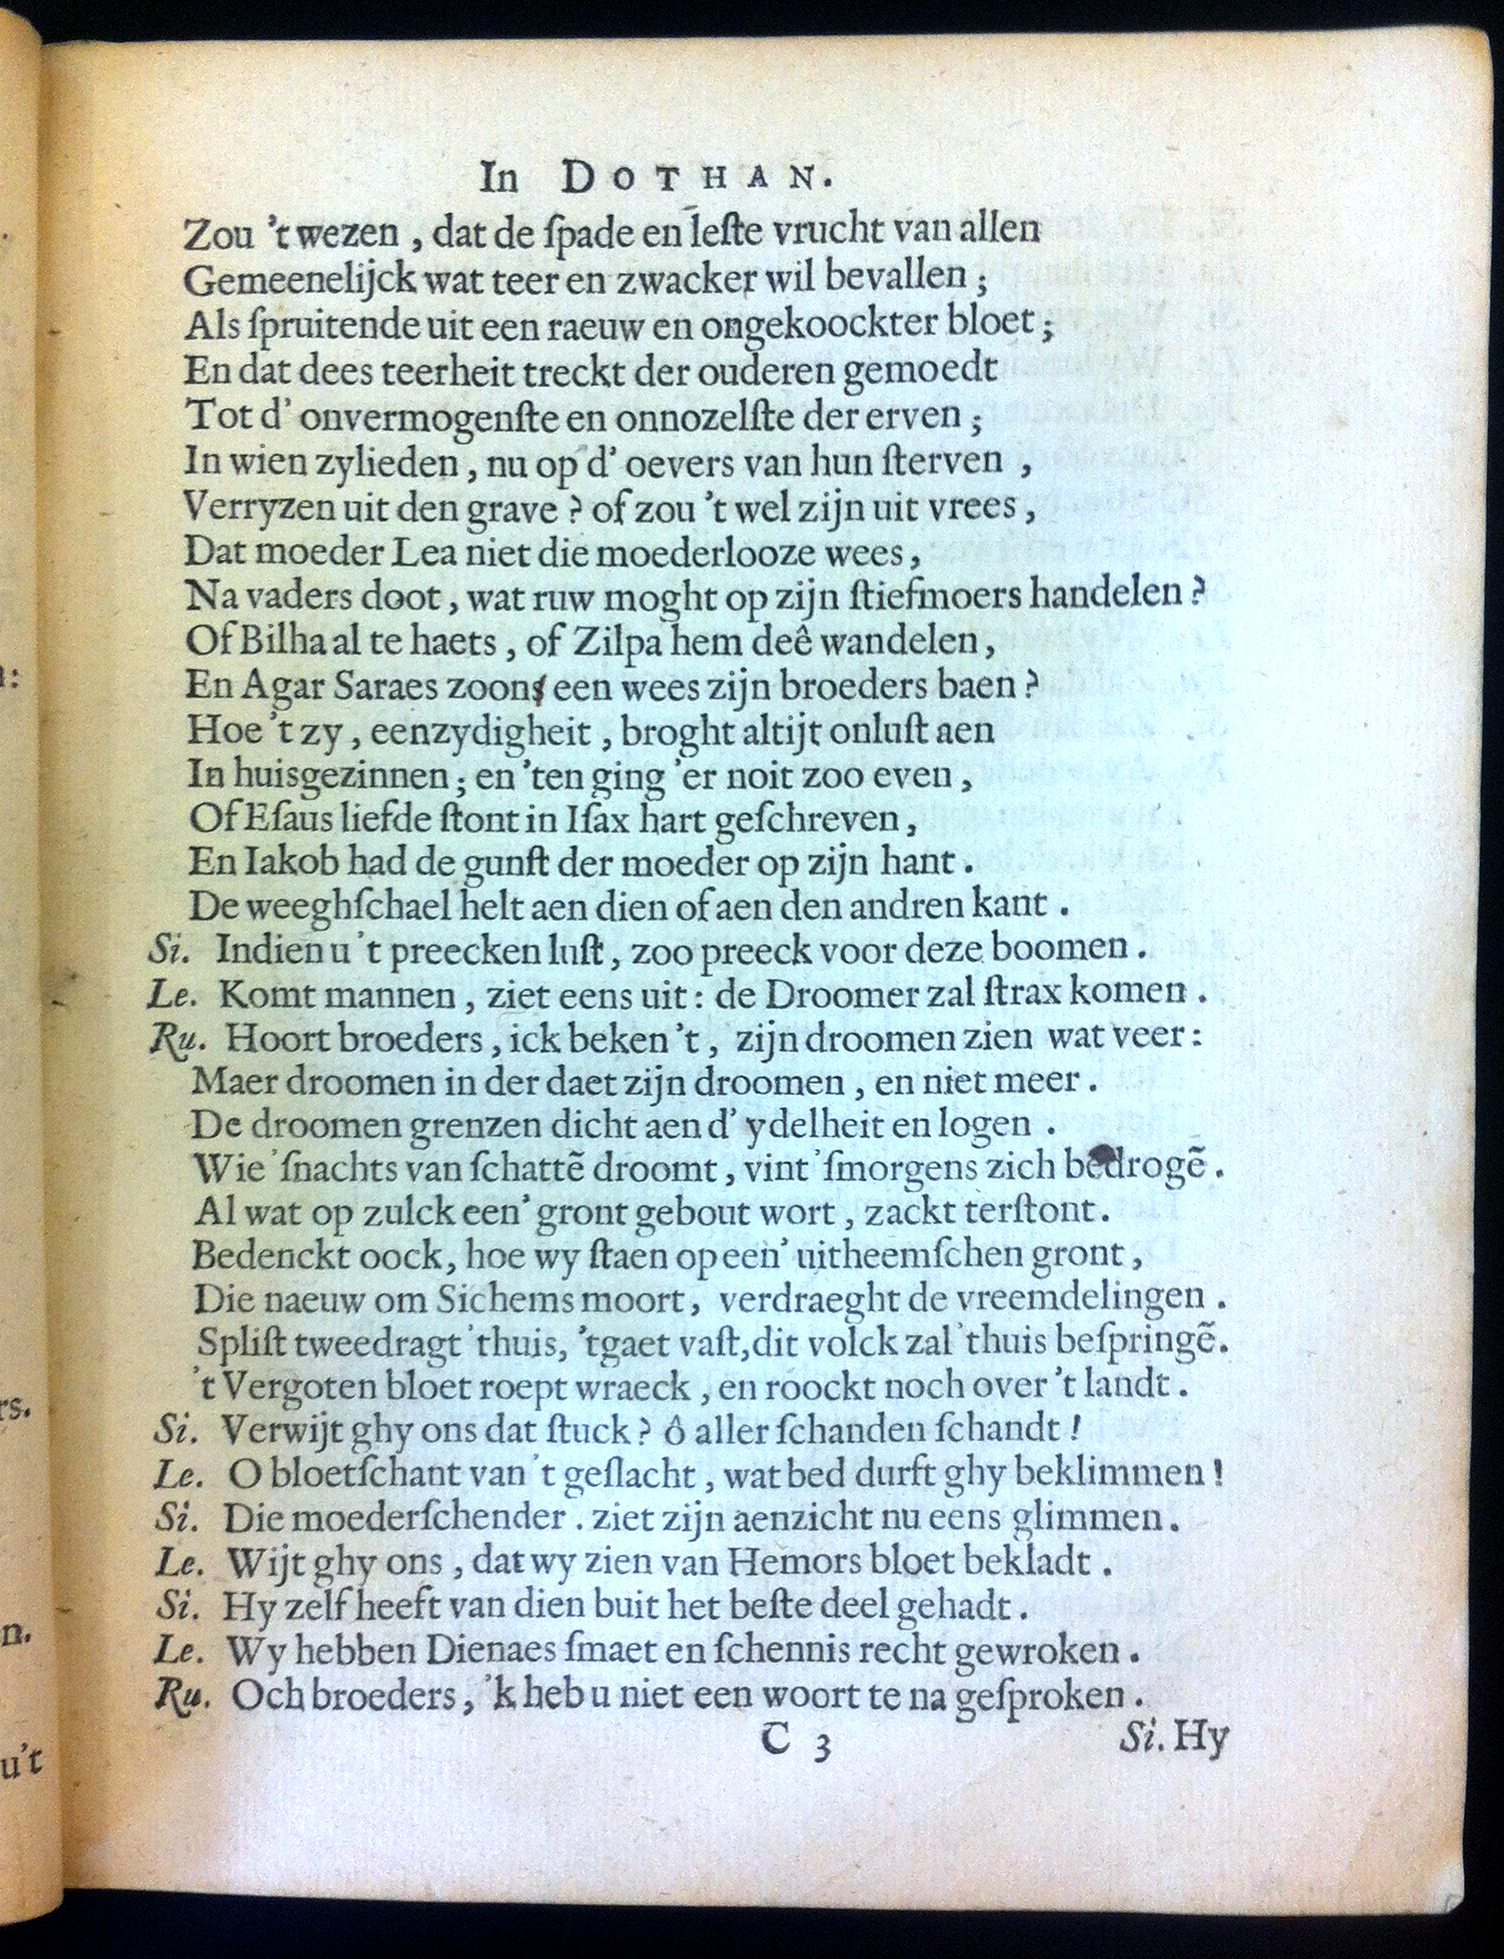 In DOTHAN.
Zou 't wezen, dat de ſpade en leſte vrucht van allen
Gemeenelijck wat teer en zwacker wil bevallen;
Als ſpruitende uit een raeuw en ongekoockter bloet;
En dat dees teerheit treckt der ouderen gemoedt
Tot d' onvermogenſte en onnozelſte der erven;
In wien zylieden, nu op d' oevers van hun ſterven,
Verryzen uit den grave? of zou 't wel zijn uit vrees,
Dat moeder Lea niet die moederlooze wees,
Na vaders doot, wat ruw moght op zijn ſtiefmoers handelen?
Of Bilha al te haets, of Zilpa hem deê wandelen,
En Agar Saraes zoons een wees zijn broeders baen?
Hoe 't zy, eenzydigheit, broght altijt onluſt aen
In huisgezinnen; en 'ten ging 'er noit zoo even,
Of Eſaus liefde ſtont in Iſax hart geſchreven,
En Iakob had de gunſt der moeder op zijn hant.
De weeghſchael helt aen dien of aen den andren kant.
Si. Indien u 't preecken luſt, zoo preeck voor deze boomen.
Le. Komt mannen, ziet eens uit: de Droomer zal ſtrax komen.
Ru. Hoort broeders, ick beken 't, zijn droomen zien wat veer:
Maer droomen in der daet zijn droomen, en niet meer.
De droomen grenzen dicht aen d' ydelheit en logen.
Wie 'ſnachts van ſchattē droomt, vint 'ſmorgens zich bedrogē.
Al wat op zulck een' gront gebout wort, zackt terſtont.
Bedenckt oock, hoe wy ſtaen op een' uitheemſchen gront,
Die naeuw om Sichems moort, verdraeght de vreemdelingen.
Spliſt tweedragt 'thuis, 'tgaet vaſt, dit volck zal 'thuis beſpringē.
't Vergoten bloet roept wraeck, en roockt noch over 't landt.
Si. Verwijt ghy ons dat ſtuck? ô aller ſchanden ſchandt!
Le. O bloetſchant van 't geſlacht, wat bed durft ghy beklimmen!
Si. Die moederſchender. ziet zijn aenzicht nu eens glimmen.
Le. Wijt ghy ons, dat wy zien van Hemors bloet bekladt.
Si. Hy zelf heeft van dien buit het beſte deel gehadt.
Le. Wy hebben Dienaes ſmaet en ſchennis recht gewroken.
Ru. Och broeders, 'k heb u niet een woort te na geſproken.
C 3 Si. Hy